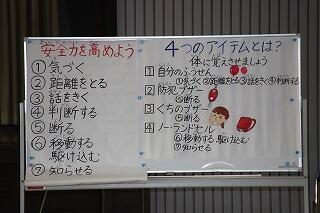 安全力を高めよう
①気づく
②距離をとる
③話をきく
④判断する
⑤断る
⑥移動する
駆け込む
⑦知らせる
4つのアイテムとは?
体に覚えさせましょう
1 自分のふうせん
①気づく②距離をとる③話をきく④判断する
2 防犯ブザー
⑤断る
3 くちのブザー
⑤断る
4 ノーランドセル
⑥移動する.駆け込む
⑦知らせる